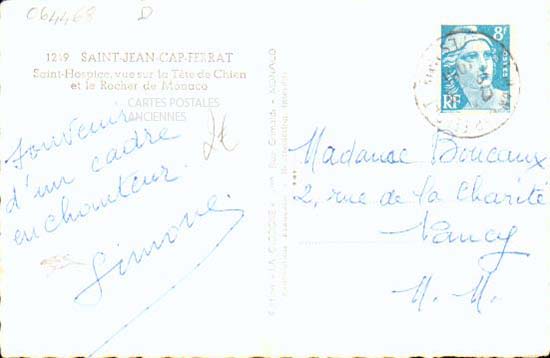 064468 D
1219 SAINT-JEAN-CAP-FERRAT
Saint-Hospice, vue sur la Tête de Chien
et le Rocher de Monaco
CARTES POSTALES
ANCIENNES
Souvenir
d'un cadre
enchanteur.
Simone.
2€
8F
POSTES
RF
Madame Boucaux
2, rue de la Charité
Nancy
M. M.